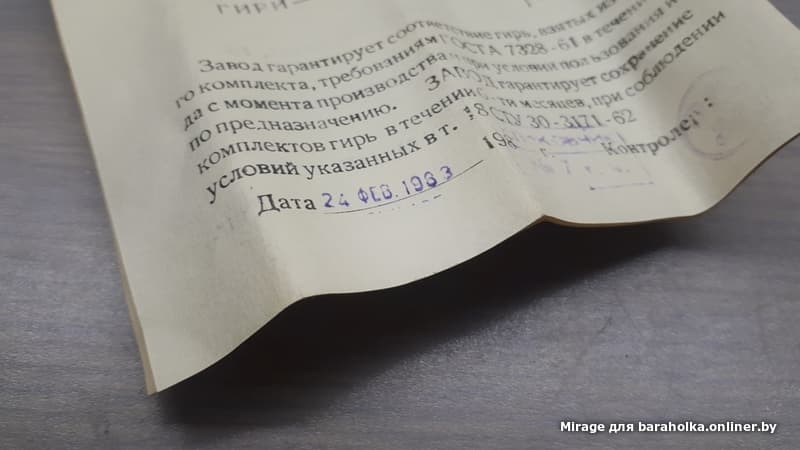 ГИРИ
Завод гарантирует соответствие гирь, взятых из
го комплекта, требованиям ГОСТА 7328-61 в течении
да с момента производства и при условии пользования и
по предназначению. ЗАВОД гарантирует сохранение
комплектов гирь в течении 6-ти месяцев, при соблюдении
условий указанных в т. 18 СТУ 30-3171-62
Дата 24 ФЕВ. 1983 198 г. Контролер:
Mirage для baraholka.onliner.by